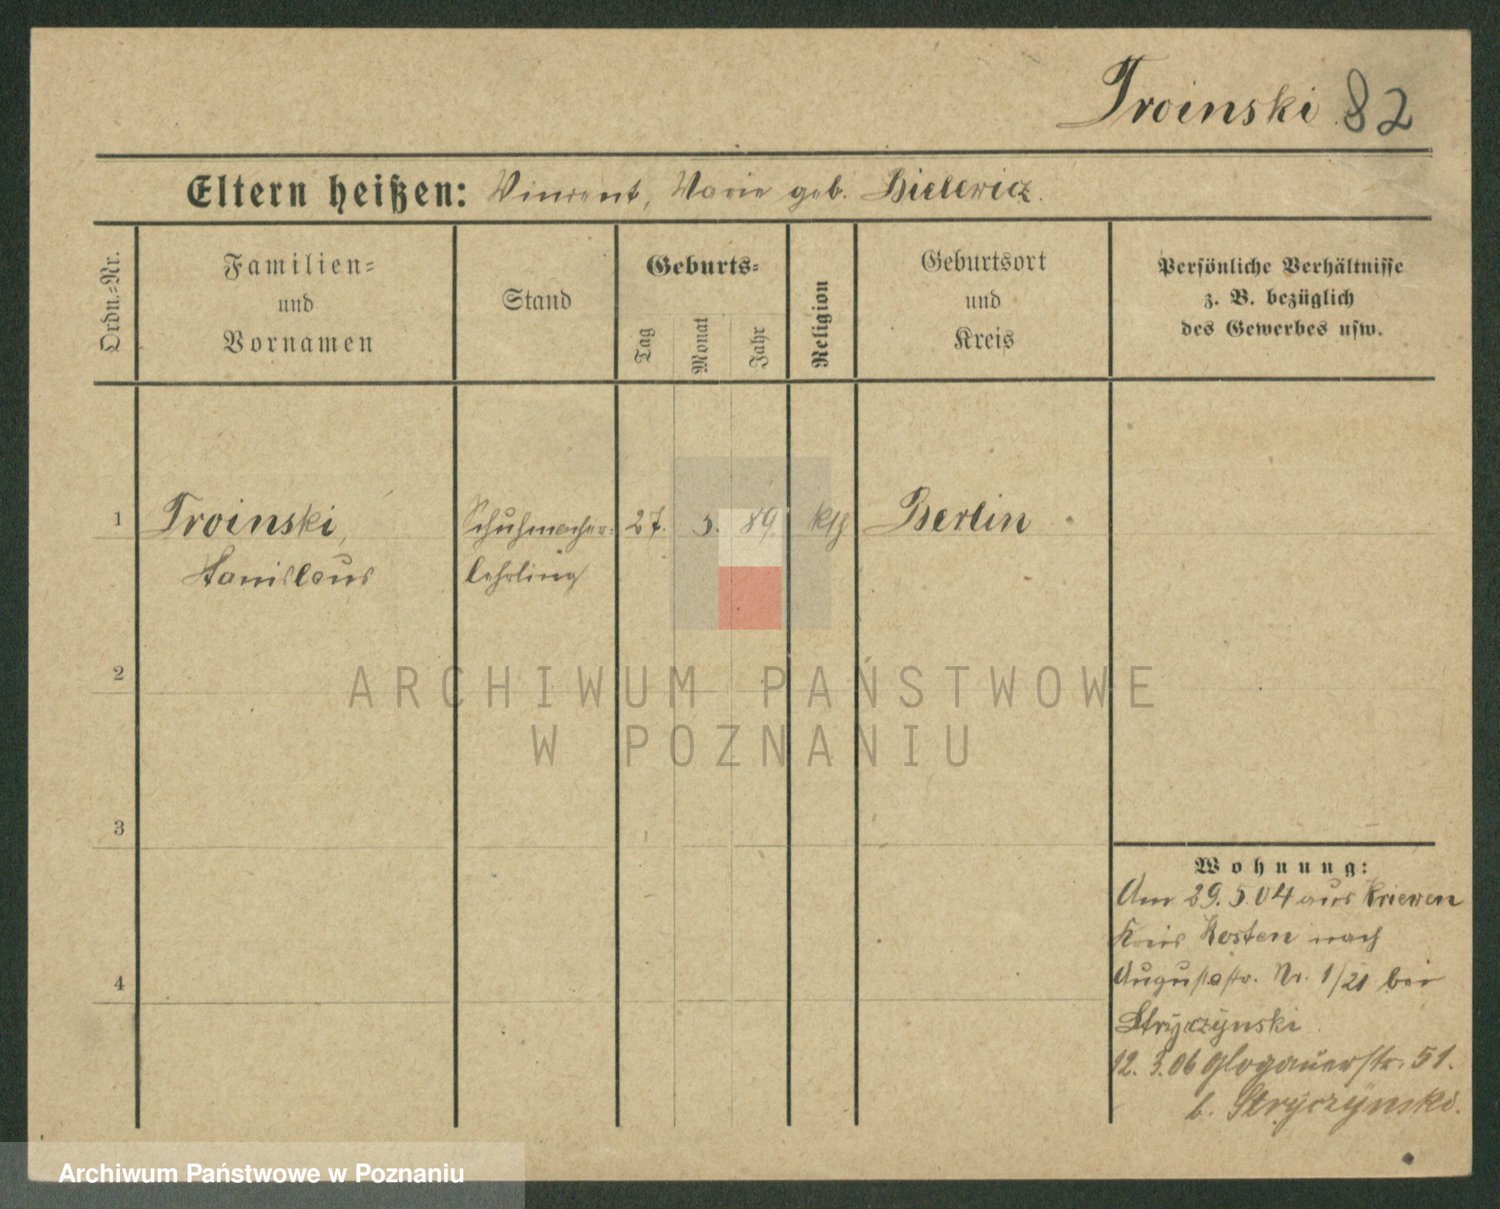 Troinski 82
Eltern heißen: Vincent, Marie geb. Bielewicz.
Ordn.=Nr.
Familien=
und
Vornamen
Stand
Geburts=
Tag
Monat
Jahr
Religion
Geburtsort
und
Kreis
Persönliche Verhältnisse
z. B. bezüglich
des Gewerbes usw.
1 Troinski, Schuhmacher- 27. 3. 89. kth Berlin
Stanislaus lehrling
2
ARCHIWUM PAŃSTWOWE
W POZNANIU
3
4
Wohnung:
Am 29.5.04 aus Kriewen
Kreis Kosten nach
Augustastr. Nr. 1/21 bei
Stryczynski
12. 3.06 Glogauerstr. 51.
b. Stryczynski.
Archiwum Państwowe w Poznaniu